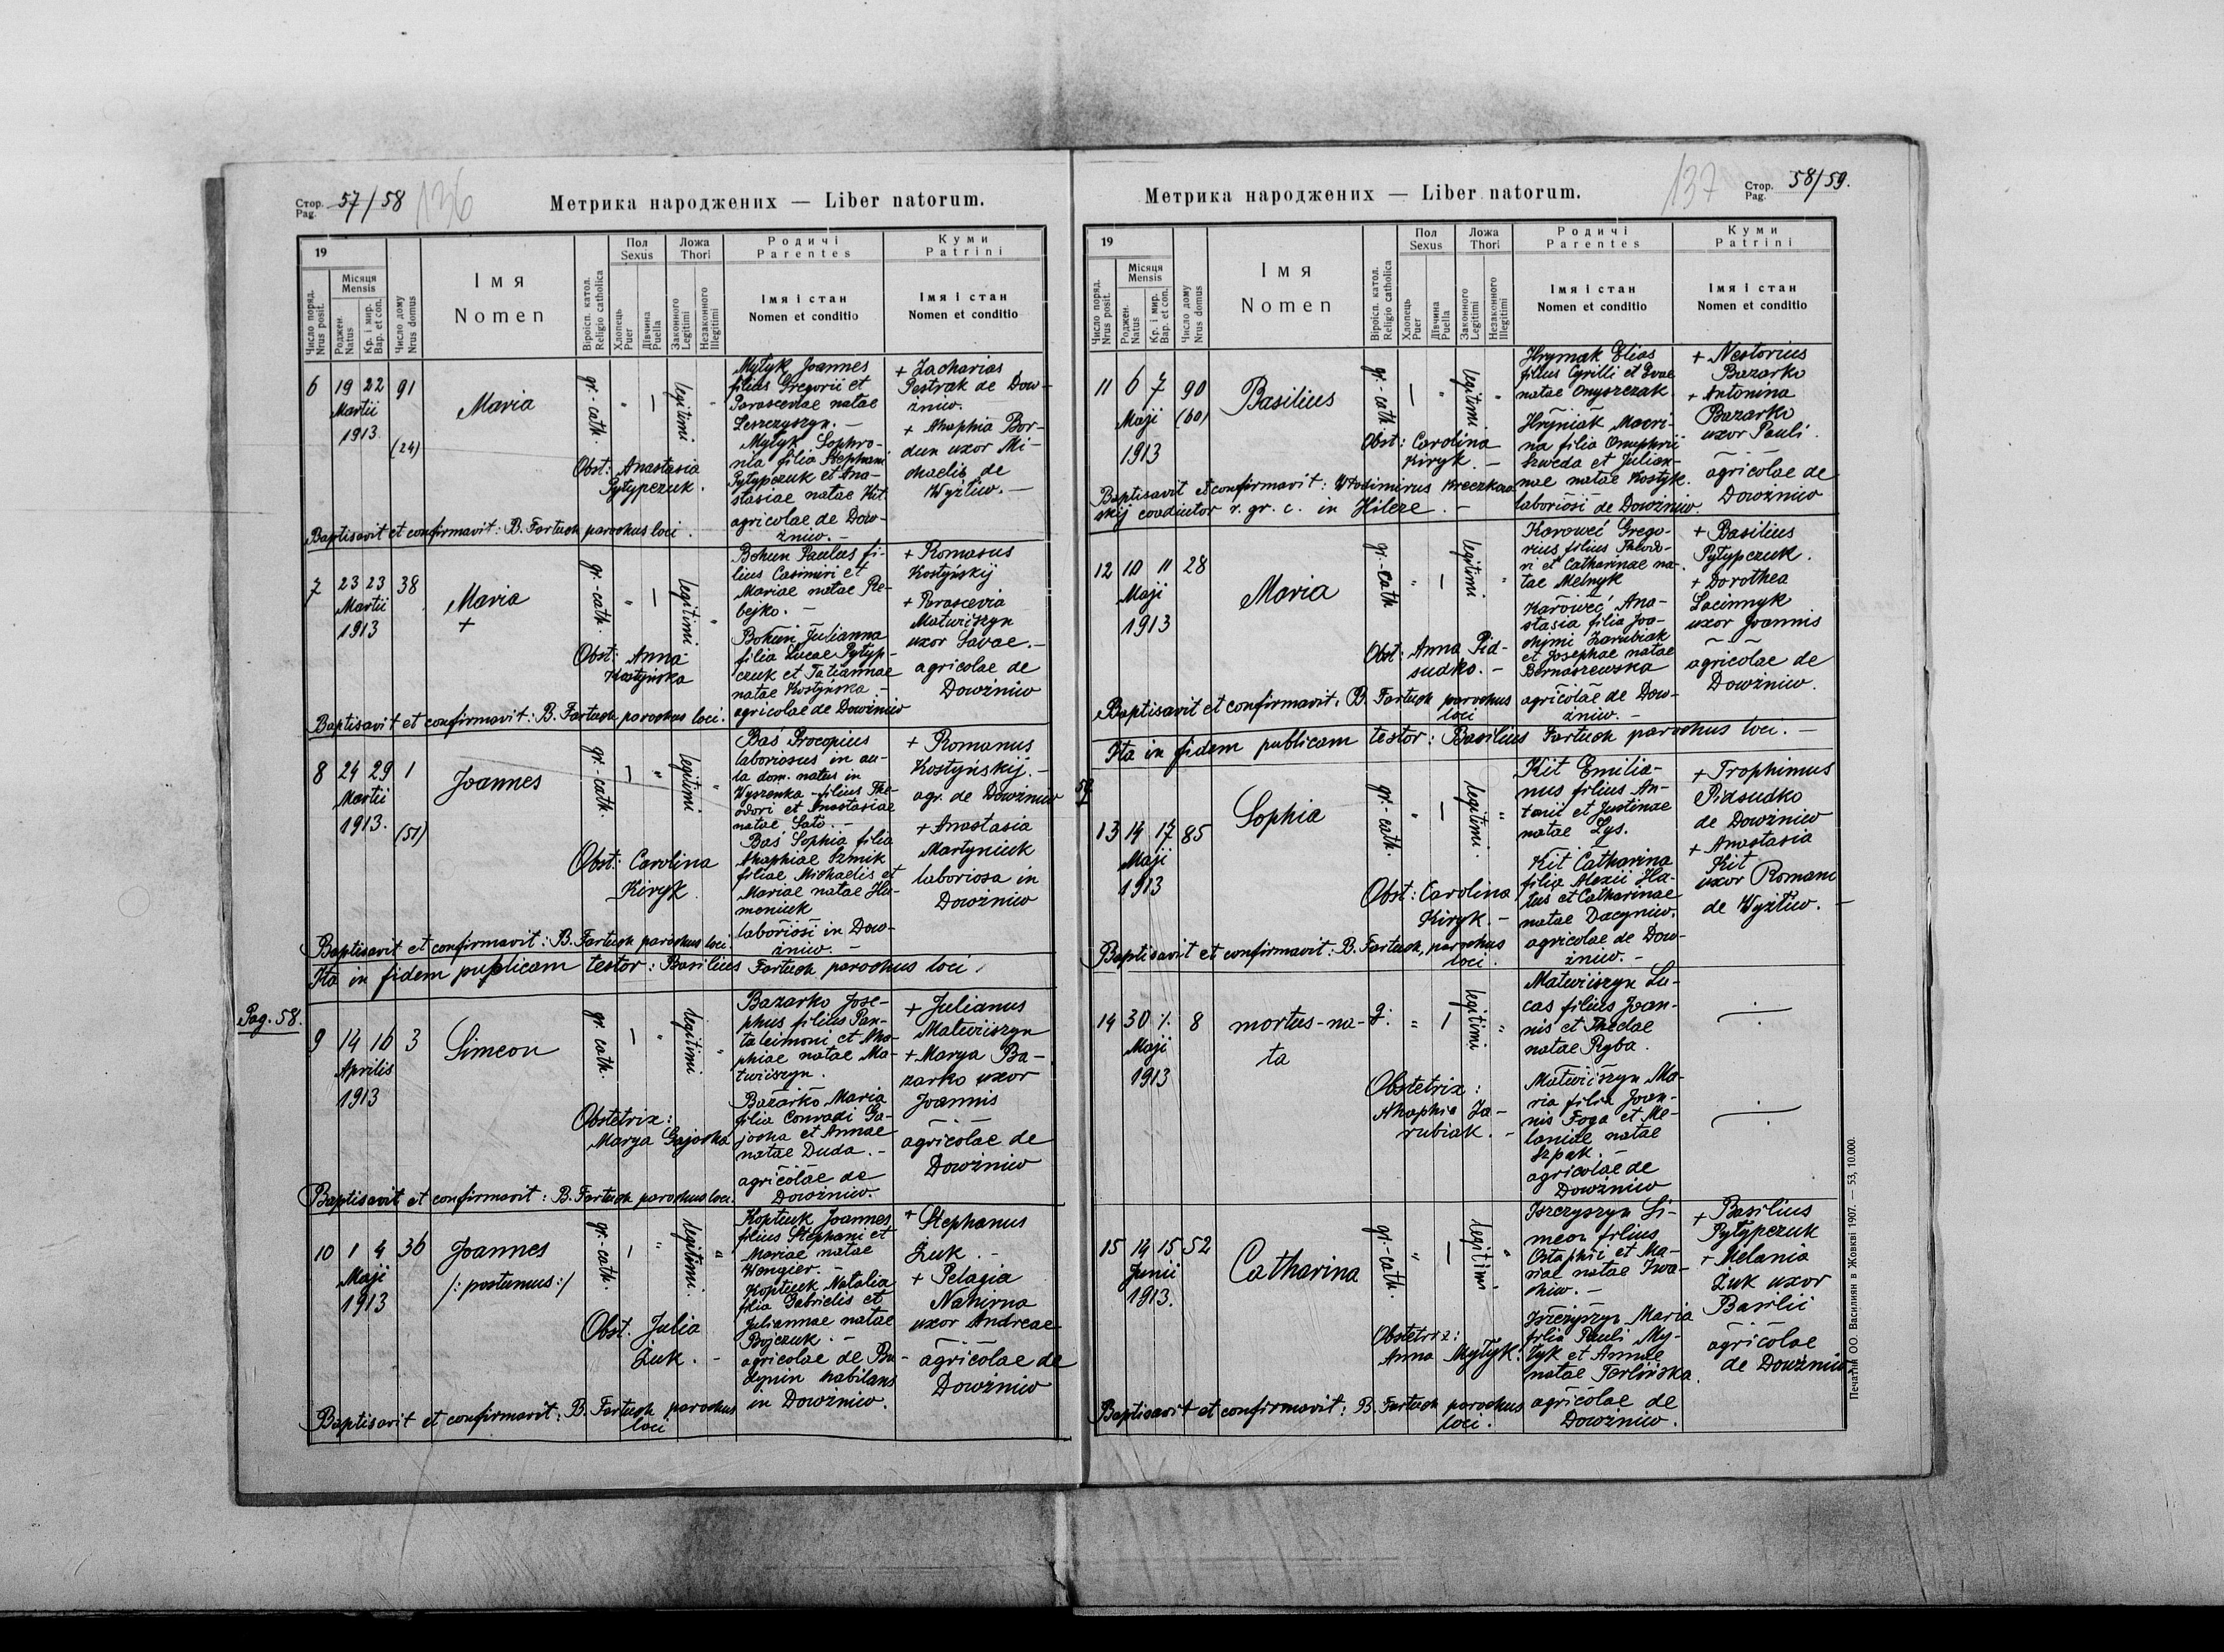 Стор.
Pag. 57/58 136
Метрика народжених — Liber natorum.
19
Число поряд.
Nrus posit.
Місяця
Mensis
Роджен.
Natus
Кр. і мир.
Bap. et con.
Число дому
Nrus domus
Імя
Nomen
Віроісп. катол.
Religio catholica
Пол
Sexus
Хлопець
Puer
Дівчина
Puella
Ложа
Thori
Законного
Legitimi
Незаконного
Illegitimi
Родичі
Parentes
Імя і стан
Nomen et conditio
Куми
Patrini
Імя і стан
Nomen et conditio
6 19 22 91
Martii
1913.
(24)
Maria
gr.-cath.
" —
legitimi "
Obst: Anastasia
Pytypczuk.
Mytyk Joannes
filius Gregorii et
Parasceviae natae
Leszczyszyn. —
Mytyk Sophro-
nia filia Stephani
Pytypczuk et Ana-
stasiae natae Kit
agricolae de Dow-
żniw. —
+ Zacharias
Pestrak de Dow-
żniw.
+ Ahaphia Bor-
dun uxor Mi-
chaelis de
Wyżtiw. —
Baptisavit et confirmavit: B. Fartuch parochus loci.
7 23 23 38
Martii
1913
Maria
+
gr.-cath.
" —
legitimi "
Obst: Anna
Kostyńska
Bohun Paulus fi-
lius Casimiri et
Mariae natae Re-
bejko. —
Bohun Julianna
filia Lucae Pytyp-
czuk et Tatiannae
natae Kostyńska. —
agricolae de Dowżniw
+ Romanus
Kostyńskij
+ Parascevia
Matwiiszyn
uxor Savae. —
agricolae de
Dowżniw
Baptisavit et confirmavit: B. Fartuch, parochus loci.
8 24 29 1
Martii
1913.
(51)
Joannes
gr.-cath.
— "
legitimi "
Obst: Carolina
Kiryk.
Baś Procopius
laboriosus in au-
la dom. natus in
Wyszenka - filius The-
odori et Anastasiae
natae Sato. —
Baś Sophia filia
Ahaphiae Szmik
filiae Michaelis et
Mariae natae Hu-
meniuk
laboriosi in Dow-
żniw. —
+ Romanus
Kostyńskij. —
agr. de Dowżniw
+ Anastasia
Martyniuk
laboriosa in
Dowżniw
Baptisavit et confirmavit: B. Fartuch parochus loci.
Ita in fidem publicam testor: Basilius Fartuch, parochus loci.
Pag. 58.
9 14 16 3
Aprilis
1913
Simeon
gr. cath.
— "
legitimi "
Obstetrix:
Marya Gajocha
Bazarko Jose-
phus filius Pan-
taleimoni et Aha-
phiae natae Ma-
twiiszyn.
Bazarko Maria
filia Conradi Ga-
jocha et Annae
natae Duda. —
agricolae de
Dowżniw.
+ Julianus
Matwiiszyn
+ Marya Ba-
zarko uxor
Joannis
agricolae de
Dowżniw
Baptisavit et confirmavit: B. Fartuch parochus loci.
10 1 4 36
Maji
1913
Joannes
/: postumus :/
gr.-cath.
— "
legitimi. "
Obst: Julia
Żuk. —
Koptiuk Joannes
filius Stephani et
Mariae natae
Wengier. —
Koptiuk Natalia
filia Gabrielis et
Juliannae natae
Bojczuk. —
agricolae de Bu-
dynin habitans
in Dowżniw.
+ Stephanus
Żuk. —
+ Pelagia
Nahirna
uxor Andreae
agricolae de
Dowżniw
Baptisavit et confirmavit: B. Fartuch parochus
loci
Метрика народжених — Liber natorum.
137 Стор.
Pag. 58/59.
19
Число поряд.
Nrus posit.
Місяця
Mensis
Роджен.
Natus
Кр. і мир.
Bap. et con.
Число дому
Nrus domus
Імя
Nomen
Віроісп. катол.
Religio catholica
Пол
Sexus
Хлопець
Puer
Дівчина
Puella
Ложа
Thori
Законного
Legitimi
Незаконного
Illegitimi
Родичі
Parentes
Імя і стан
Nomen et conditio
Куми
Patrini
Імя і стан
Nomen et conditio
11 6 7 90
Maji (60)
1913
Basilius
gr.-cath.
— "
legitimi "
Obst: Carolina
Kiryk. —
Hrymak Elias
filius Cyrilli et Evae
natae Onyszczak
Hryniak Mari-
na filia Onuphrii
Szweda et Julian-
nae natae Kostyk.
laboriosi de Dowżniw.
+ Nestorius
Bazarko
+ Antonina
Bazarko
uxor Pauli.
agricolae de
Dowżniw
Baptisavit et confirmavit: Włodimirus Kreczkow-
skij coadiutor r. gr. c. in Hilcze. —
12 10 11 28
Maji
1913
Maria
gr.-cath
" —
legitimi "
Obst: Anna Pid-
sudko. —
Karoweć Grego-
rius filius Theodo-
ri et Catharinae na-
tae Melnyk
Karoweć Ana-
stasia filia Joa-
chimi Zarubiak
et Josephae natae
Bernaszewska
agricolae de Dow-
żniw. —
+ Basilius
Pytypczuk.
+ Dorothea
Lacinnyk
uxor Joannis
agricolae de
Dowżniw.
Baptisavit et confirmavit: B. Fartuch parochus
loci
Ita in fidem publicam testor: Basilius Fartuch parochus loci. —
59
13 14 17 85
Maji
1913
Sophia
gr.-cath.
" —
legitimi. "
Obst: Carolina
Kiryk. —
Kit Emilia-
nus filius An-
tonii et Justinae
natae Lys.
Kit Catharina
filia Alexii Ha-
tus et Catharinae
natae Dacyniw.
agricolae de Dow-
żniw. —
+ Trophimus
Pidsudko
de Dowżniw
+ Anastasia
Kit
uxor Romani
de Wyżtiw. —
Baptisavit et confirmavit: B. Fartuch, parochus
loci.
14 30 ⁒ 8
Maji
1913
mortus-na-
ta
g:
" —
legitimi "
Obstetrix:
Ahaphia Za-
rubiak. —
Matwiiszyn Lu-
cas filius Joan-
nis et Theclae
natae Ryba.
Matwiiszyn Ma-
ria filia Joan-
nis Foga et Me-
laniae natae
Szpak. —
agricolae de
Dowżniw
15 14 15 52
Junii
1913.
Catharina
gr.-cath.
" —
legitimi "
Obstetrix:
Anna Mytyk.
Iszczyszyn Si-
meon filius
Ostaphii et Ma-
riae natae Iwa-
chiw. —
Iszczyszyn Maria
filia Pauli My-
tyk et Annae
natae Terlińska.
agricolae de
Dowżniw.
+ Basilius
Pytypczuk
+ Melania
Żuk uxor
Basilii
agricolae
de Dowżniw
Baptisavit et confirmavit: B. Fartuch parochus
loci.
Печатня ОО. Василиян в Жовкві 1907. — 53, 10.000.